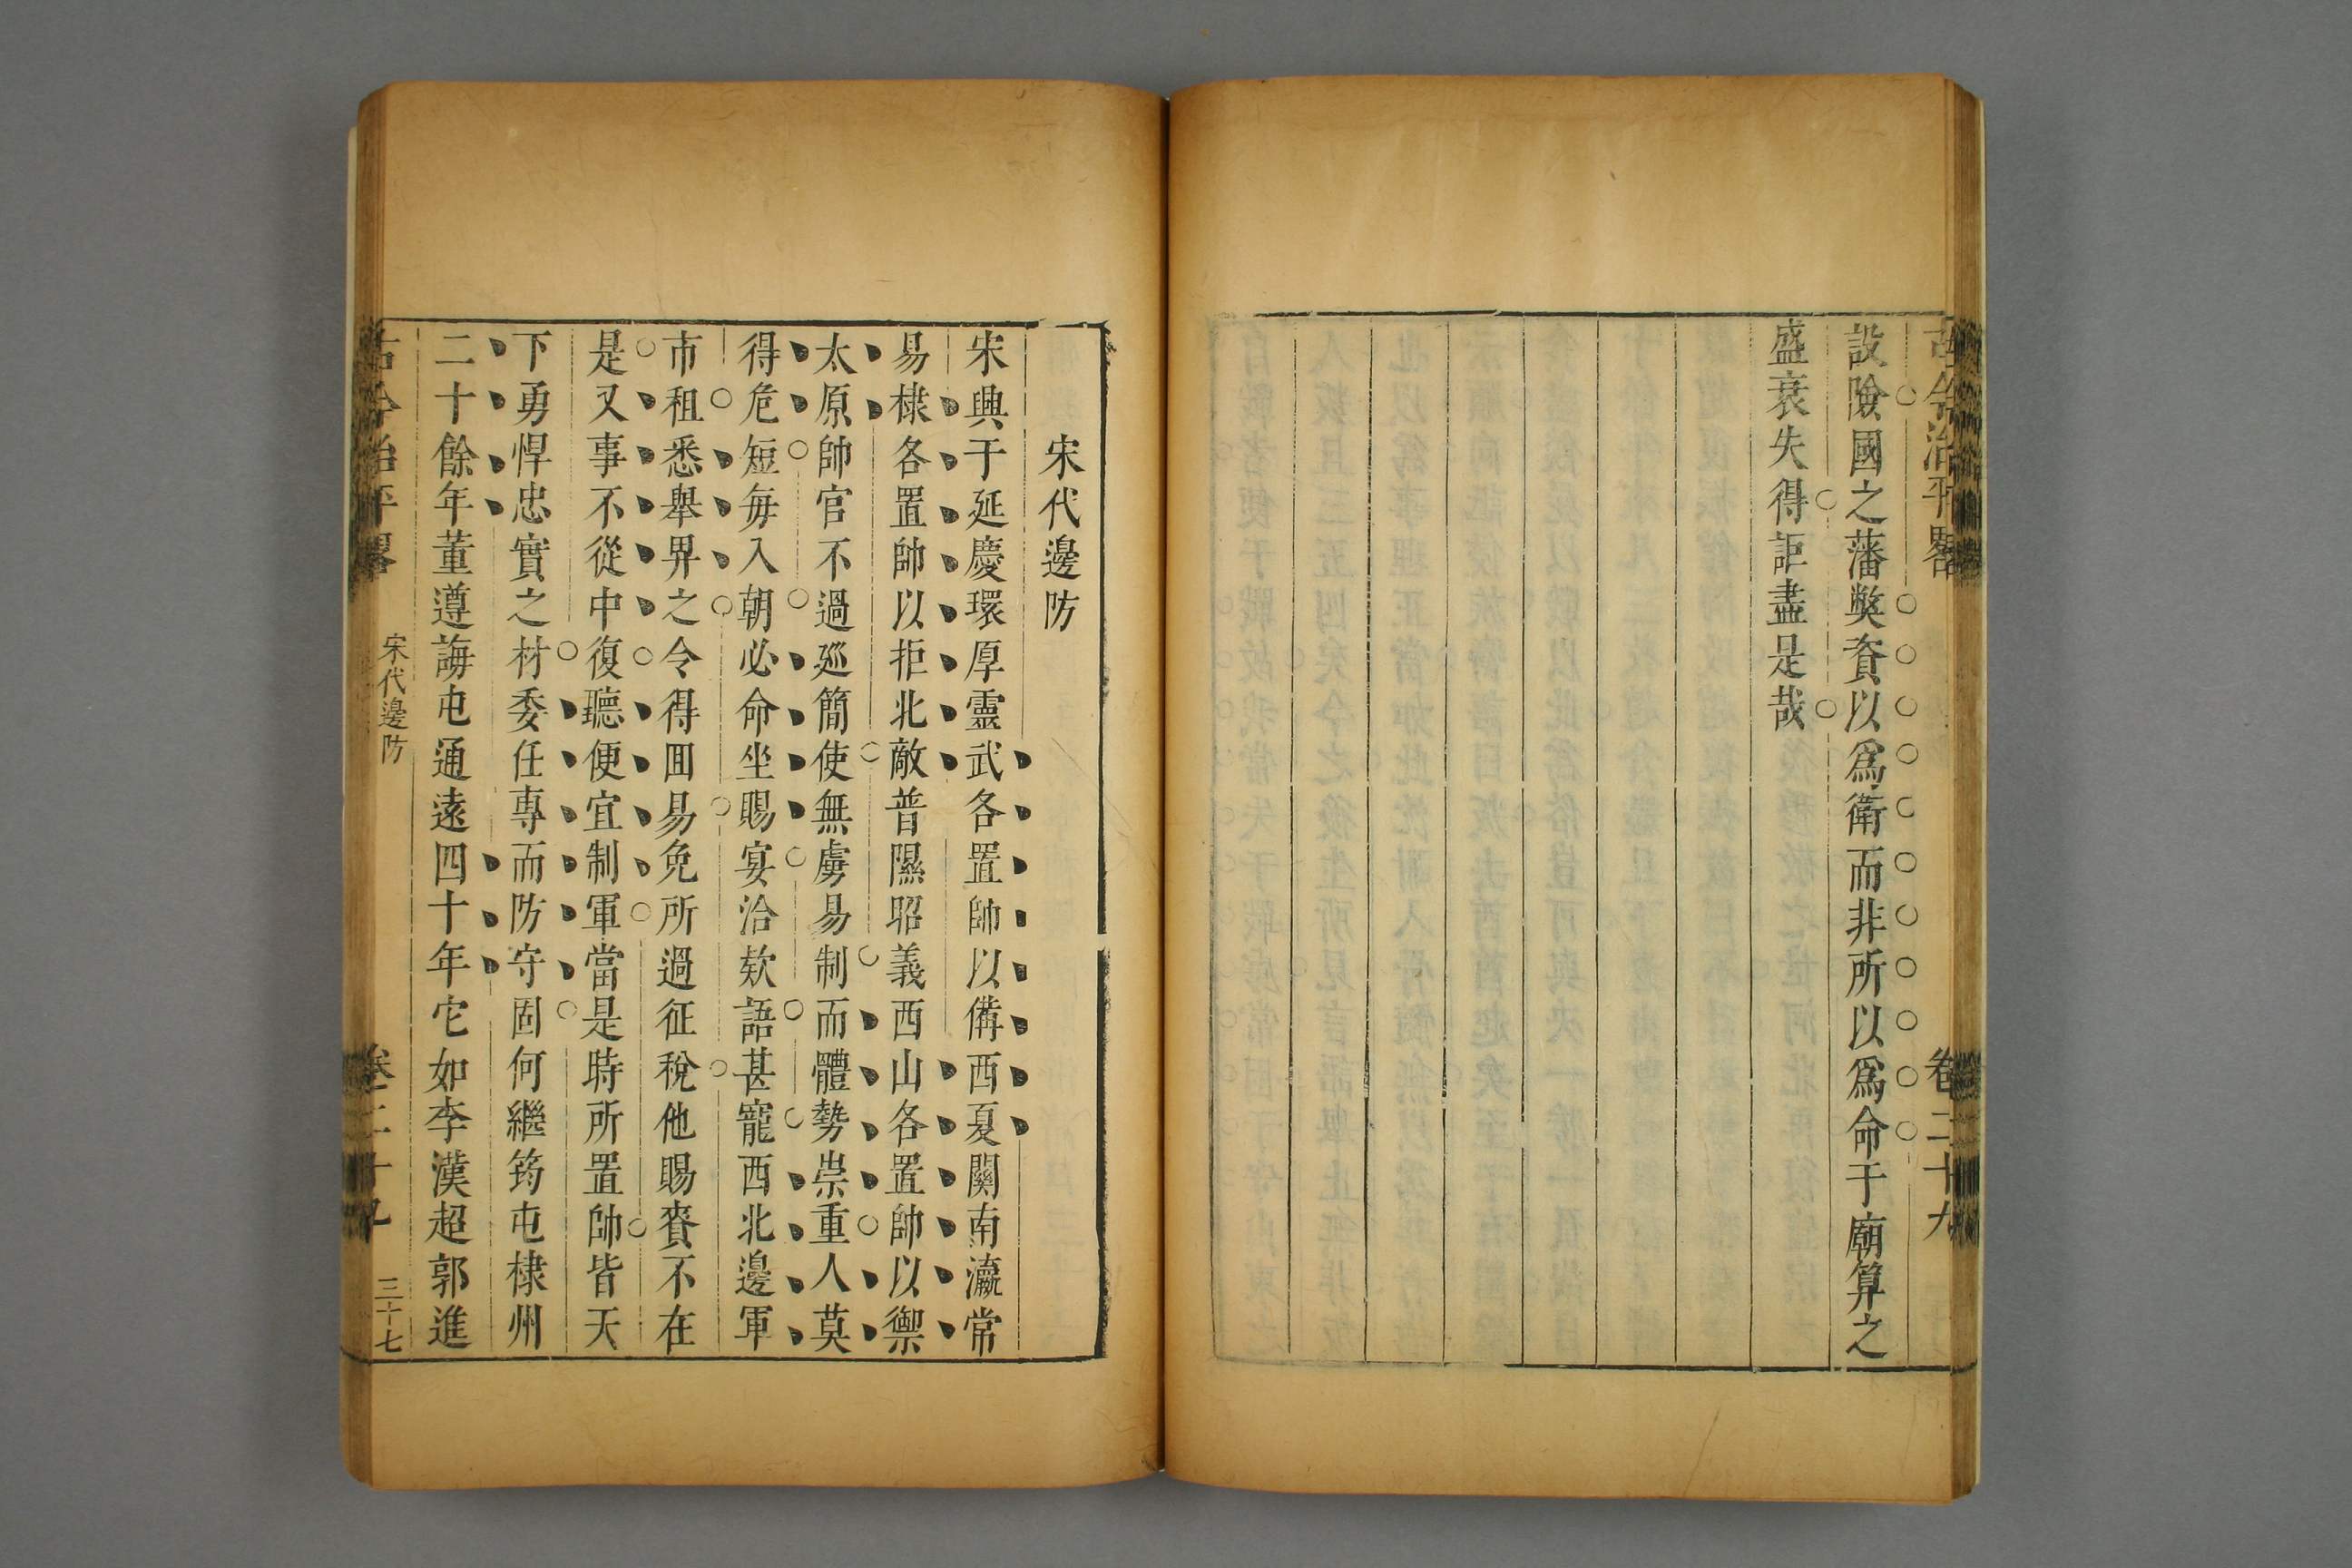 古今治平畧
卷二十九
設險國之藩獘資以爲衛而非所以爲命于廟算之
盛衰失得詎盡是哉
宋代邊防
宋興于延慶環厚靈武各置帥以備西夏關南瀛常
易棣各置帥以拒北敵普隰昭義西山各置帥以禦
太原帥官不過廵簡使無虜易制而體勢崇重人莫
得危短每入朝必命坐賜宴洽欵語甚寵西北邊軍
市租悉舉畀之令得回易免所過征稅他賜賚不在
是又事不從中復聽便宜制軍當是時所置帥皆天
下勇悍忠實之材委任專而防守固何繼筠屯棣州
二十餘年董遵誨屯通遠四十年它如李漢超郭進
古今治平畧
宋代邊防
卷二十九
三十七